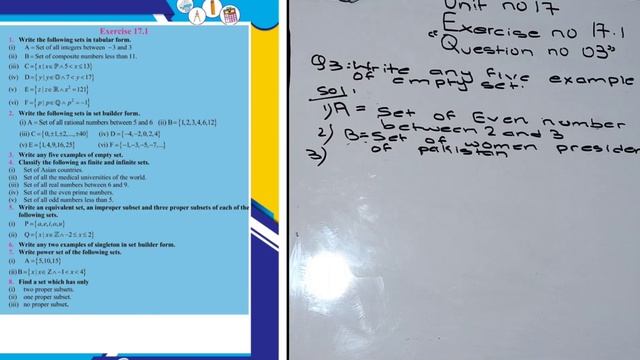 Exercise 17.1
1. Write the following sets in tabular form.
(i) A = Set of all integers between −3 and 3
(ii) B = Set of composite numbers less than 11.
(iii) C = {x | x ∈ P ∧ 5 < x ≤ 13}
(iv) D = {y | y ∈ O ∧ 7 < y < 17}
(v) E = {z | z ∈ R ∧ x² = 121}
(vi) F = {p | p ∈ Q ∧ p² = −1}
2. Write the following sets in set builder form.
(i) A = Set of all rational numbers between 5 and 6 (ii) B = {1, 2, 3, 4, 6, 12}
(iii) C = {0, ±1, ±2, ..., ±40} (iv) D = {−4, −2, 0, 2, 4}
(v) E = {1, 4, 9, 16, 25} (vi) F = {−1, −3, −5, −7, ...}
3. Write any five examples of empty set.
4. Classify the following as finite and infinite sets.
(i) Set of Asian countries.
(ii) Set of all the medical universities of the world.
(iii) Set of all real numbers between 6 and 9.
(iv) Set of all the even prime numbers.
(v) Set of all odd numbers less than 5.
5. Write an equivalent set, an improper subset and three proper subsets of each of the
following sets.
(i) P = {a, e, i, o, u}
(ii) Q = {x | x ∈ Z ∧ −2 ≤ x ≤ 2}
6. Write any two examples of singleton in set builder form.
7. Write power set of the following sets.
(i) A = {5, 10, 15}
(ii) B = {x | x ∈ Z ∧ −1 < x < 4}
8. Find a set which has only
(i) two proper subsets.
(ii) one proper subset.
(iii) no proper subset.
Unit no 17
Exercise no 17.1
"Question no 03"
Q3:- Write any five example
of empty set.
Sol:
1) A = Set of Even number
between 2 and 3
2) B = Set of women presiden
of pakistan
3)